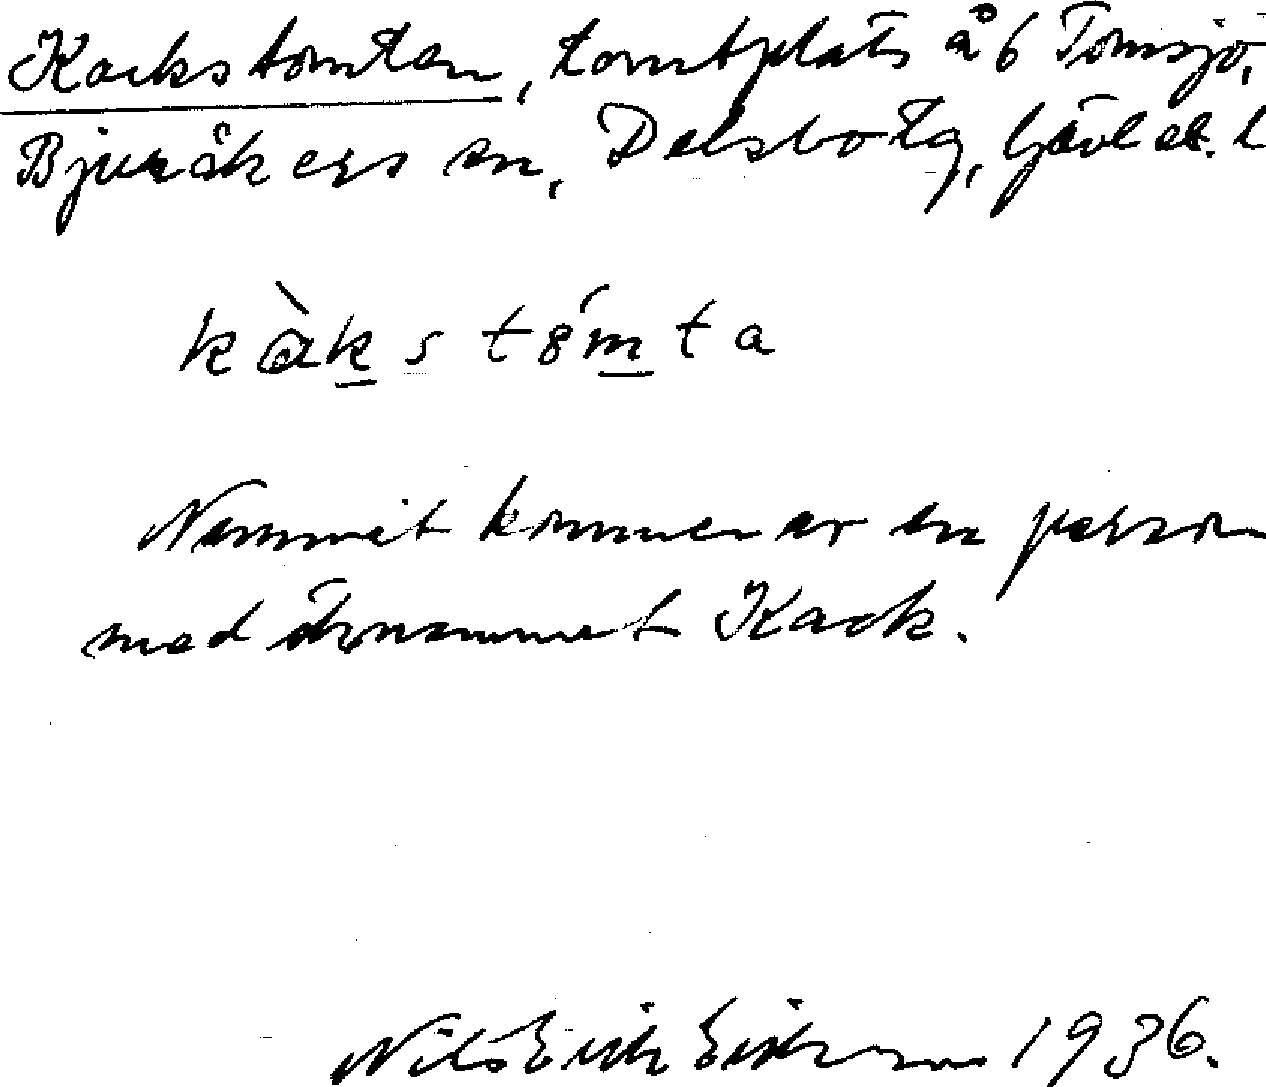 Kackstomten, tomtplats å 6 Tomsjö,
Bjuråkers sn, Delsbo tg, Gävleb. l
kàkstómta
Namnet kommer av en person
med övernamnet Kack.
Nils Erik Eriksson 1936.